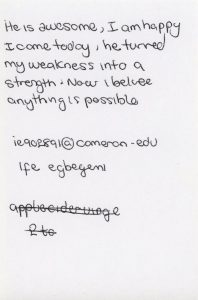 He is awesome, I am happy
I came today, he turned
my weakness into a
strength. Now i beleve
anything is possible
ie902891@cameron-edu
Ife egbegeni
applecidervinge
2 to